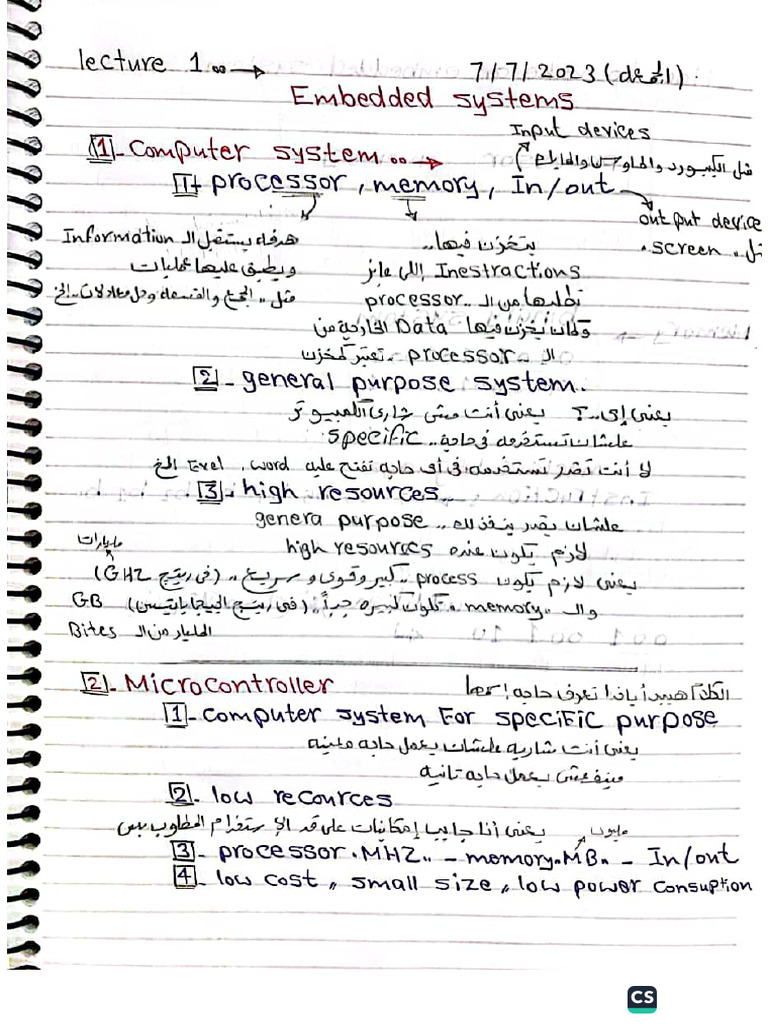 lecture 1 ∘∘ →
7/7/2023 (الجمعة)
Embedded systems
Input devices
1- Computer system... →
مثل الكيبورد والماوس والمايك
1+ processor, memory, In/out
output device
مثل.. screen.
هدفه يستقبل الـ Information
ويطبق عليها عمليات
مثل.. الجمع والقسمه وحل معادلات.. الخ
يتخزن فيها..
Inestractions اللي عايز
تطلبها من الـ.. processor
وكمان يتخزن فيها Data الخارجة من
الـ processor. تعتبر كمخزن
2- general purpose system.
يعني إي..؟ يعني أنت مش شاري الكمبيوتر
علشان تستخدمه في حاجة.. specific
لا أنت تقدر تستخدمه في أي حاجه تفتح عليه word، Exel الخ
3- high resources..
علشان يقدر ينفذ لك.. genera purpose
لازم يكون عنده high resources
مليارات
يعني لازم يكون process.. كبير وقوي وسريع.. (في رينج GHZ)
والـ.. memory، تكون كبيره جداً.. (في رينج الجيجا بايتس) GB
المليار من الـ Bites
2- Microcontroller
1- computer system For specific purpose
يعني أنت شاريه علشان يعمل حاجه معينه
مينفعش يعمل حاجه تانيه
2- low recources
يعني أنا جايب إمكانيات على قد الإستخدام المطلوب بس
مليون
3- processor.MHZ.. - memory.MB. - In/out
4- low cost, small size, low power consuption
CS